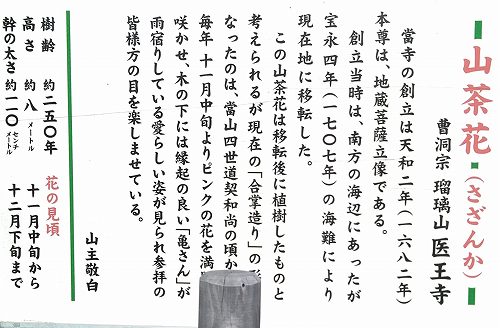 山茶花・(さざんか)
曹洞宗 瑠璃山 医王寺
當寺の創立は天和二年(一六八二年)
本尊は、地蔵菩薩立像である。
創立当時は、南方の海辺にあったが
宝永四年(一七〇七年)の海難により
現在地に移転した。
この山茶花は移転後に植樹したものと
考えられるが現在の「合掌造り」の形
なったのは、當山四世道契和尚の頃か
毎年 十一月中旬よりピンクの花を満
咲かせ、木の下には縁起の良い「亀さん」が
雨宿りしている愛らしい姿が見られ参拝の
皆様方の目を楽しませている。
山主敬白
樹齢 約二五〇年
高さ 約 八メートル
幹の太さ 約一〇センチメートル
花の見頃
十一月中旬から
十二月下旬まで